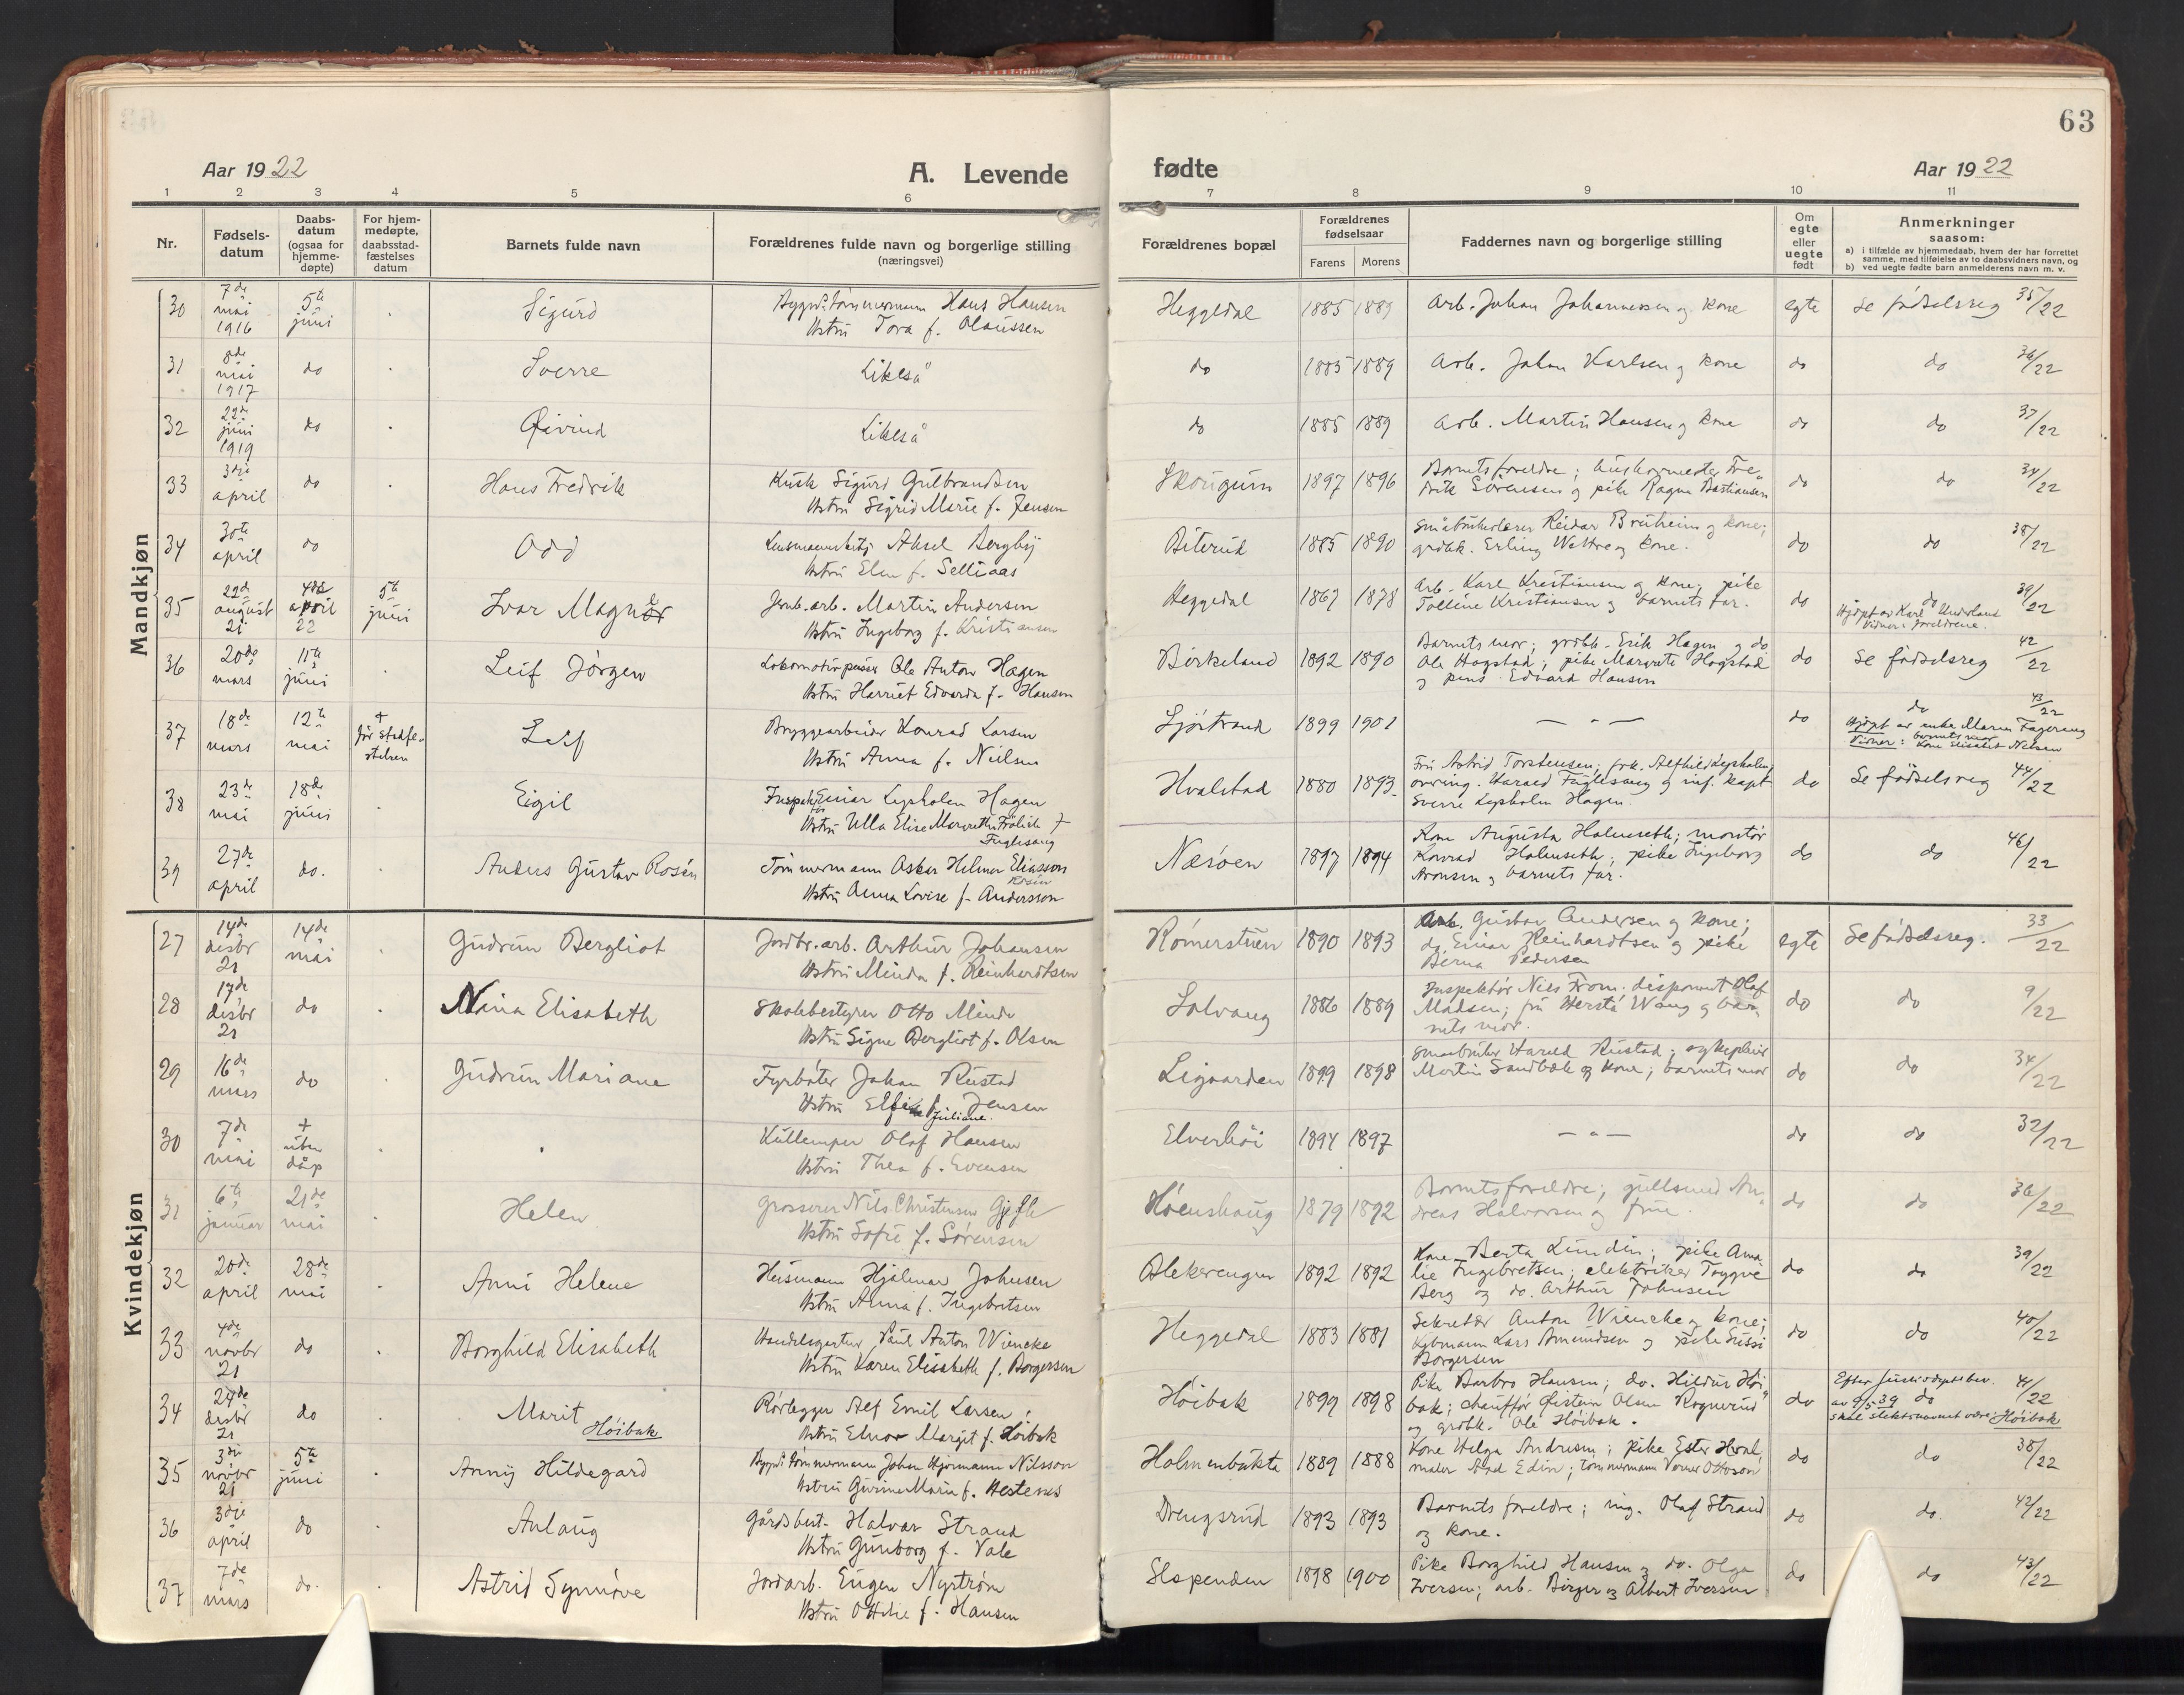 63
Aar 1922
A. Levende
fødte
Aar 1922
1 2 3 4 5 6 7 8 9 10 11
Nr.
Fødsels-
datum
Daabs-
datum
(ogsaa for
hjemme-
døpte)
For hjem-
medøpte,
daabsstad-
fæstelses
datum
Barnets fulde navn
Forældrenes fulde navn og borgerlige stilling
(næringsvei)
Forældrenes bopæl
Forældrenes
fødselsaar
Farens
Morens
Faddernes navn og borgerlige stilling
Om
egte
eller
uegte
født
Anmerkninger
saasom:
a) i tilfælde av hjemmedaab, hvem der har forrettet
samme, med tilføielse av to daabsvidners navn, og
b) ved uegte fødte barn anmelderens navn m. v.
Mandkjøn
30 7de mai 1916 5te juni Sigurd Bygn.tømmermann Hans Hansen
Hstru Tora f. Olaussen
Heggedal 1885 1889 Arb. Johan Johannessen og kone egte Se fødselsreg 35/22
31 8de mai 1917 do Sverre Likeså
do 1885 1889 Arb. Johan Karlsen og kone do do 36/22
32 22de juni 1919 do Øivind Likeså
do 1885 1889 Arb. Martin Hansen og kone do do 37/22
33 3dje april do Hans Fredrik Kusk Sigurd Gulbrandsen
Hstru Sigrid Marie f. Jensen
Skougum 1897 1896 Barnets foreldre; hushovmester Fre-
drik Sørensen og pike Ragna Bastiansen do do
34 30te april do Odd Lensmannsbetj Aksel Bergby
Hstru Elen f. Selliaas
Biterud 1885 1890 Småbruker Reidar Bruheim og kone;
grdbk. Erling Wettre og kone. do do 38/22
35 22de august 21 4de april 22 5te juni Ivar Magner Jernb.arb. Martin Andersen
Hstru Ingeborg f. Kristiansen
Heggedal 1867 1878 Arb. Karl Kristiansen og kone; pike
Tolline Kristiansen og barnets far. do do 39/22
Hjdøpt av Karl
Vidner: foreldrene.
36 20de mars 11te juni Leif Jørgen Lokomotivpusser Ole Anton Hagen
Hstru Harriet Edvarda f. Hansen
Birkeland 1892 1890 Barnets mor; grdbk. Erik Hagen og do
Ole Hogstad; pike Margrete Hogstad
og pens. Edvard Hansen do Se fødselsreg 42/22
37 18de mars 12te mai + før stadfe-
stelsen Leif Bryggearbeider Konrad Larsen
Hstru Anna f. Nielsen
Sjøstrand 1899 1901 — " — do do 43/22
Hjdøpt av enke Maren Fagerang
Vidner: barnets mor
kone Elisabet Nielsen
38 23de mai 18de juni Eigil Inspektør Einar Lypholm Hagen
Hstru Ulla Elise Margrethe Frølich f
Fuglesang
Hvalstad 1880 1893 Fru Astrid Torstensen; frk. Alfhild Lypholm;
overing. Harald Fuglesang og inf. kapt.
Sverre Lypholm Hagen. do Se fødselsreg 44/22
39 27de april do. Anders Gustav Rosén Tømmermann Oskar Hilmer Eliasson
Rosén
Hstru Anna Lovise f. Andersson
Nesøen 1897 1894 Kone Augusta Holmseth;
Konrad Holmseth; pike Ingeborg
Aronsen og barnets far. do do 46/22
Kvindekjøn
27 14de desbr 21 14de mai Gudrun Bergliot Jordbr.arb. Arthur Johansen
Hstru Minda f. Reinhardtsen
Rømerstuen 1890 1893 Arb. Gustav Andersen og kone;
do Einar Reinhardtsen og pike
Berna Pedersen egte Se fødselsreg. 33/22
28 17de desbr 21 do Nina Elisabeth Skolebestyrer Otto Minde
Hstru Signe Bergliot f. Olsen
Solvang 1886 1889 Inspektør Nils From; disponent Olaf
Madsen; fru Hersta Wang og bar-
nets mor. do do 9/22
29 16de mars do Gudrun Mariane Fyrbøter Johan Rustad
Hstru Juliane f. Jensen
Ligaarden 1899 1898 Småbruker Harald Rustad; sykepleier
Martin Sandbæk og kone; barnets mor do do 34/22
30 7de mai + uten dåp Kullemper Olaf Hansen
Hstru Thea f. Evensen
Elverhøi 1894 1897 — " — do do 32/22
31 6te januar 21de mai Helen Grosserer Nils Christensen
Hstru Sofie f. Sørensen
Høenshaug 1879 1892 Barnets foreldre; gullsmed An-
dreas Halvorsen og frue. do do 36/22
32 20de april 28de mai Anni Helene Husmann Hjalmar Johnsen
Hstru Anna f. Ingebretsen
Blekerengen 1892 1892 Kone Berta Lundin; pike Ama-
lie Ingebretsen; elektriker Trygve
Berg og do. Arthur Johnsen do do 39/22
33 4de novbr 21 do Borghild Elisabeth Handelsgartner Paul Anton Wiencke
Hstru Karen Elisabeth f. Borgersen
Heggedal 1883 1881 Sekretær Anton Wiencke og kone;
Kjøbmann Lars Amundsen og pike Sussi
Borgersen do do 40/22
34 24de desbr 21 do Marit
Høibak Rørlegger Alf Emil Larsen
Hstru Elnor Margit f. Høibak
Høibak 1899 1898 Pike Barbro Hansen; do. Hildur Høi-
bak; chauffør Øistein Olsen Rognerud
og grdbk. Ole Høibak. do do 41/22
Efter justisdeptsbev.
av 9/5 39
skal slektsnavnet være: Høibak
35 3dje novbr 21 5te juni Anny Hildegard Bygn.tømmermann Johan Hjermann Nilsson
Hstru Gunine Marie f. Hestenes
Holmenbukta 1889 1888 Kone Helga Andresen; pike Ester Hval;
maler Alad Edin; tømmermann Verner Ottoson do do 38/22
36 3dje april do Anlaug Gårdsbest. Halvar Strand
Hstru Gunborg f. Vale
Drengsrud 1893 1893 Barnets foreldre; ing. Olaf Strand
og kone. do do. 42/22
37 7de mars do. Astrid Synnøve Jordarb. Eugen Nystrøm
Hstru Ottilie f. Hansen
Slependen 1898 1900 Pike Borghild Hansen og do. Olga
Iversen; arb. Birger og Albert Iversen do do 43/22